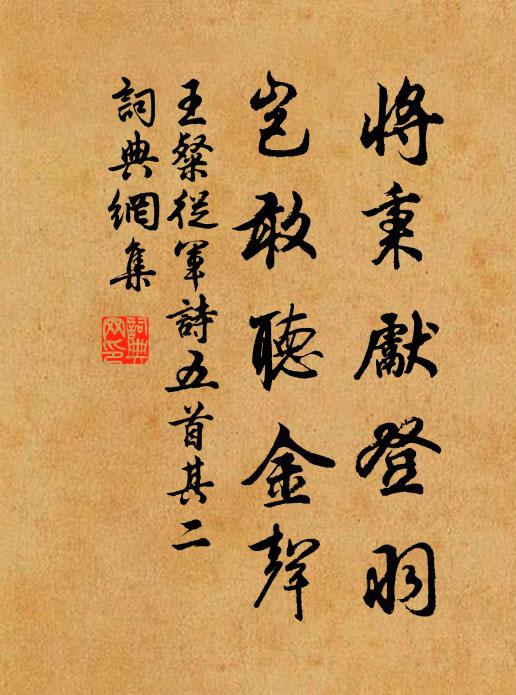 將秉獻登羽
豈敢聽金聲
王粲從軍詩五首其二
詞典網集
詞典网印